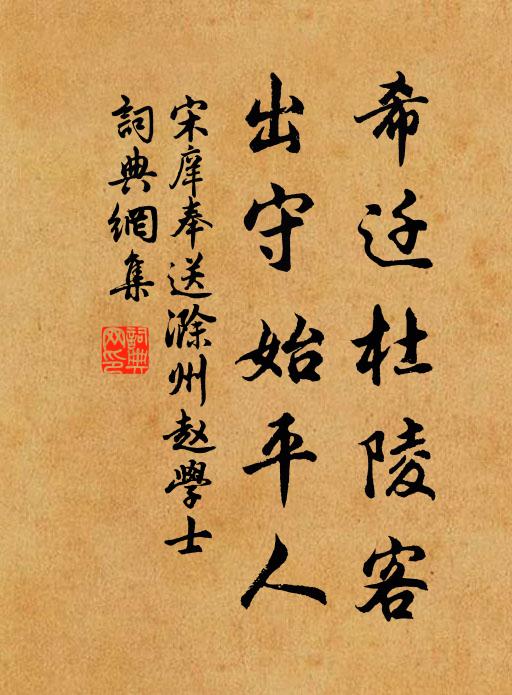 希迁杜陵客
出守始平人
宋庠奉送滁州赵學士
詞典網集
詞典網印